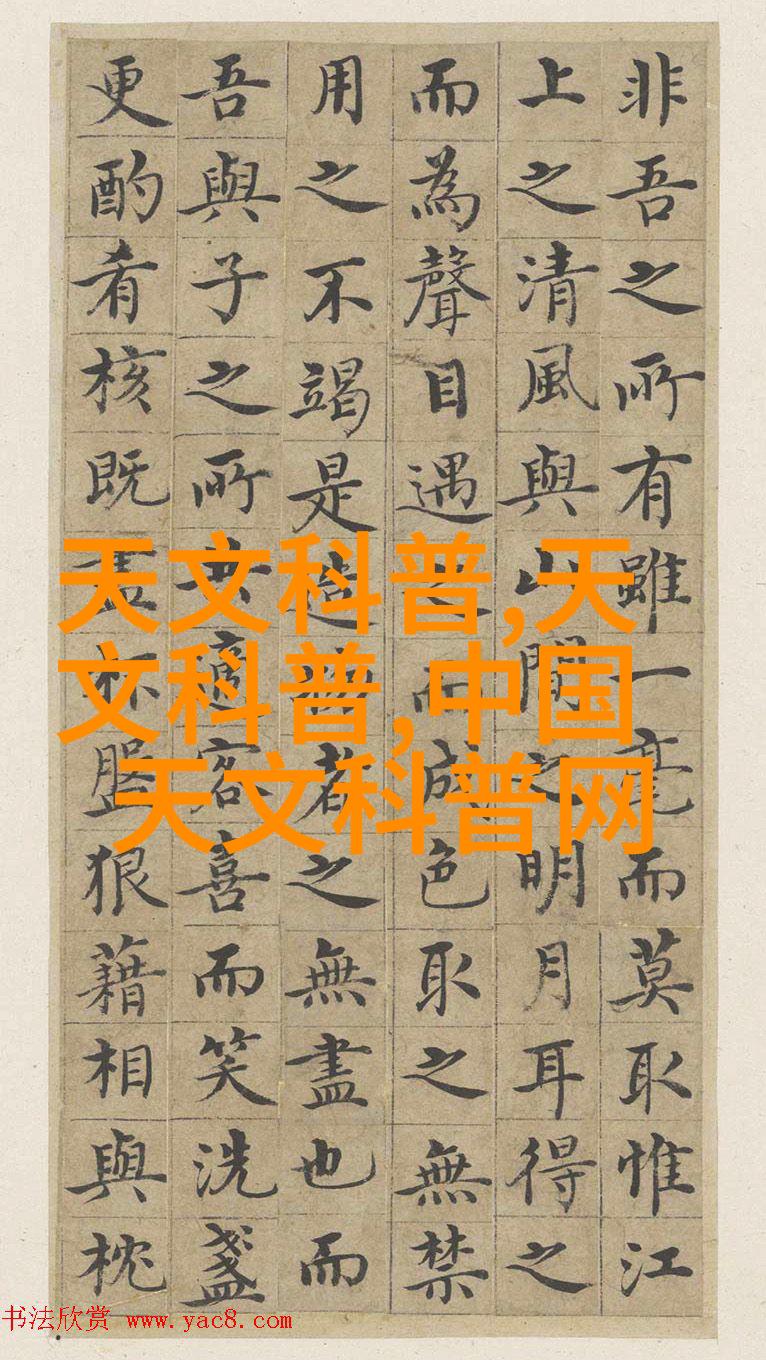 非吾之所有雖一毫而莫取惟江
上之清風與山間之明月耳得之
而為聲目遇之而成色取之無禁
用之不竭是造物者之無盡也而
吾與子之所共適客喜而笑洗盞
更酌肴核既盡杯盤狼藉相與枕
天文科普,天
文科普,中国
天文科普网
书法欣赏 www.yac8.com